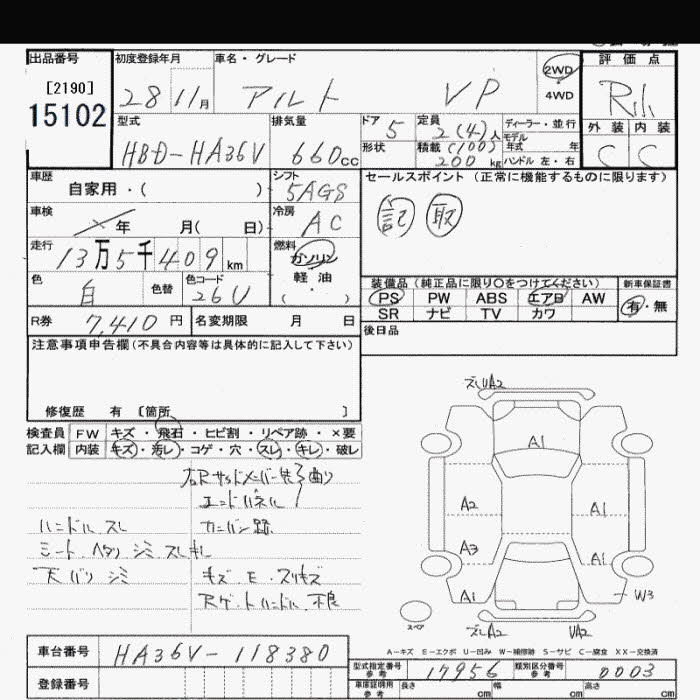 出品番号 初度登録年月 車名・グレード 2WD 4WD 評価点
[2190] 15102 28 11月 アルト VP
外装 内装 C C
型式 HBD-HA36V 排気量 660cc ドア 5 定員 2(4)人 ディーラー・並行
形状 積載 (100) 200kg モデル年式 年 ハンドル 左・右
車歴 自家用・( ) シフト 5AGS セールスポイント (正常に機能するものに限ります)
車検 年 月( 日) 冷房 AC 記 取
走行 13万5千409km 燃料 ガソリン 軽油 ・( )
色 白 色替 色コード 26U
装備品 (純正品に限り○をつけてください) 新車保証書
PS PW ABS エアB AW 有・無
SR ナビ TV カワ
R券 7,410円 名変期限 月 日 後日品
注意事項申告欄 (不具合内容等は具体的に記入して下さい)
修復歴 有 〔箇所 〕
検査員記入欄 FW キズ・飛石・ヒビ割・リペア跡・×要
内装 キズ・汚レ・コゲ・穴・スレ・キレ・破レ
右Rサイドメンバー先3曲り
エンドパネル
ハンドル スレ カンバン跡
シート ヘタリ シミ スレ キレ
天バリ シミ キズ・E・スリキズ
Rゲートハンドル 不良
ズレUA2
A1
A2 A1
A3 A1
A1 W3
スペア ズレA2 UA2
A-キズ E-エクボ U-凹み W-補修跡 S-サビ C-腐食 XX-交換済
車台番号 HA36V-118380
型式指定番号 参考 17956 類別区分番号 参考 0003
登録番号 車庫証明用 参考 長さ cm 幅 cm 高さ cm